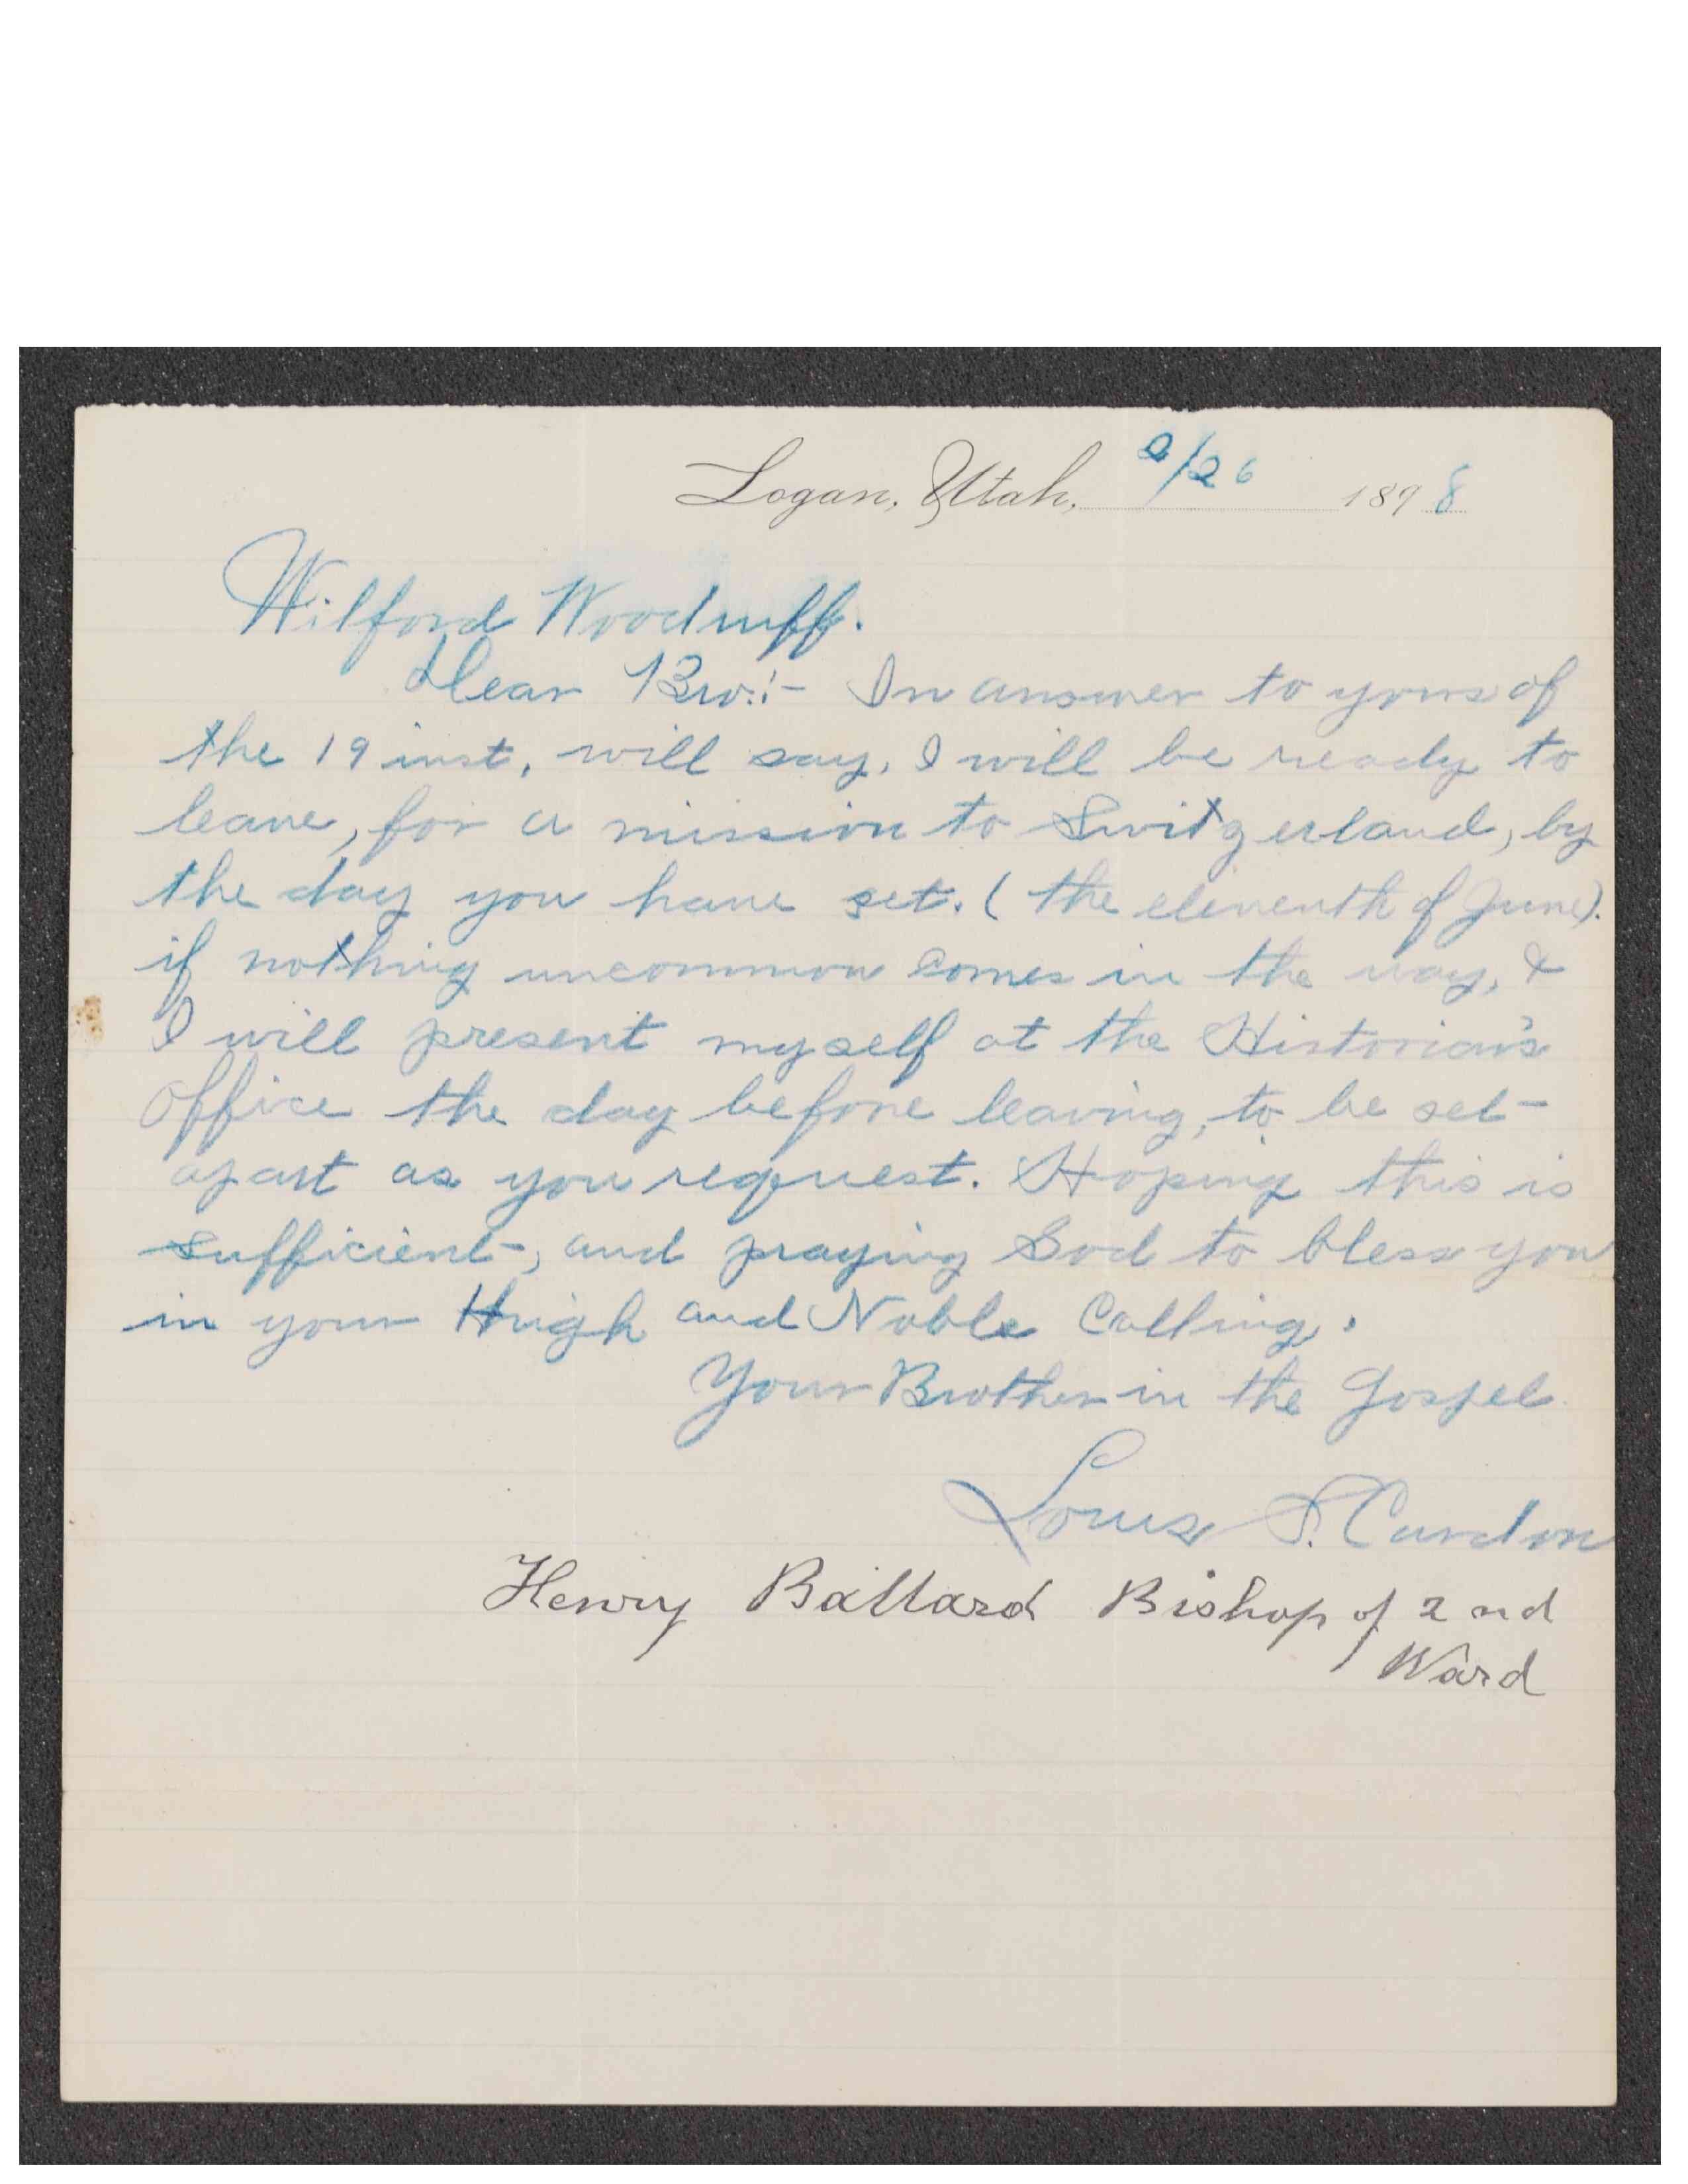 Logan, Utah, 2/26 1898
Wilford Woodruff.
Dear Bro.:- In answer to yours of
the 19 inst, will say, I will be ready to
leave, for a mission to Switzerland, by
the day you have set. (the eleventh of June).
if nothing uncommon comes in the way, &
I will present myself at the Historian's
office the day before leaving, to be set-
apart as you request. Hoping this is
sufficient-, and praying God to bless you
in your High and Noble Calling.
Your Brother in the Gospel
Louis S. Cardon
Henry Ballard Bishop of 2nd
Ward